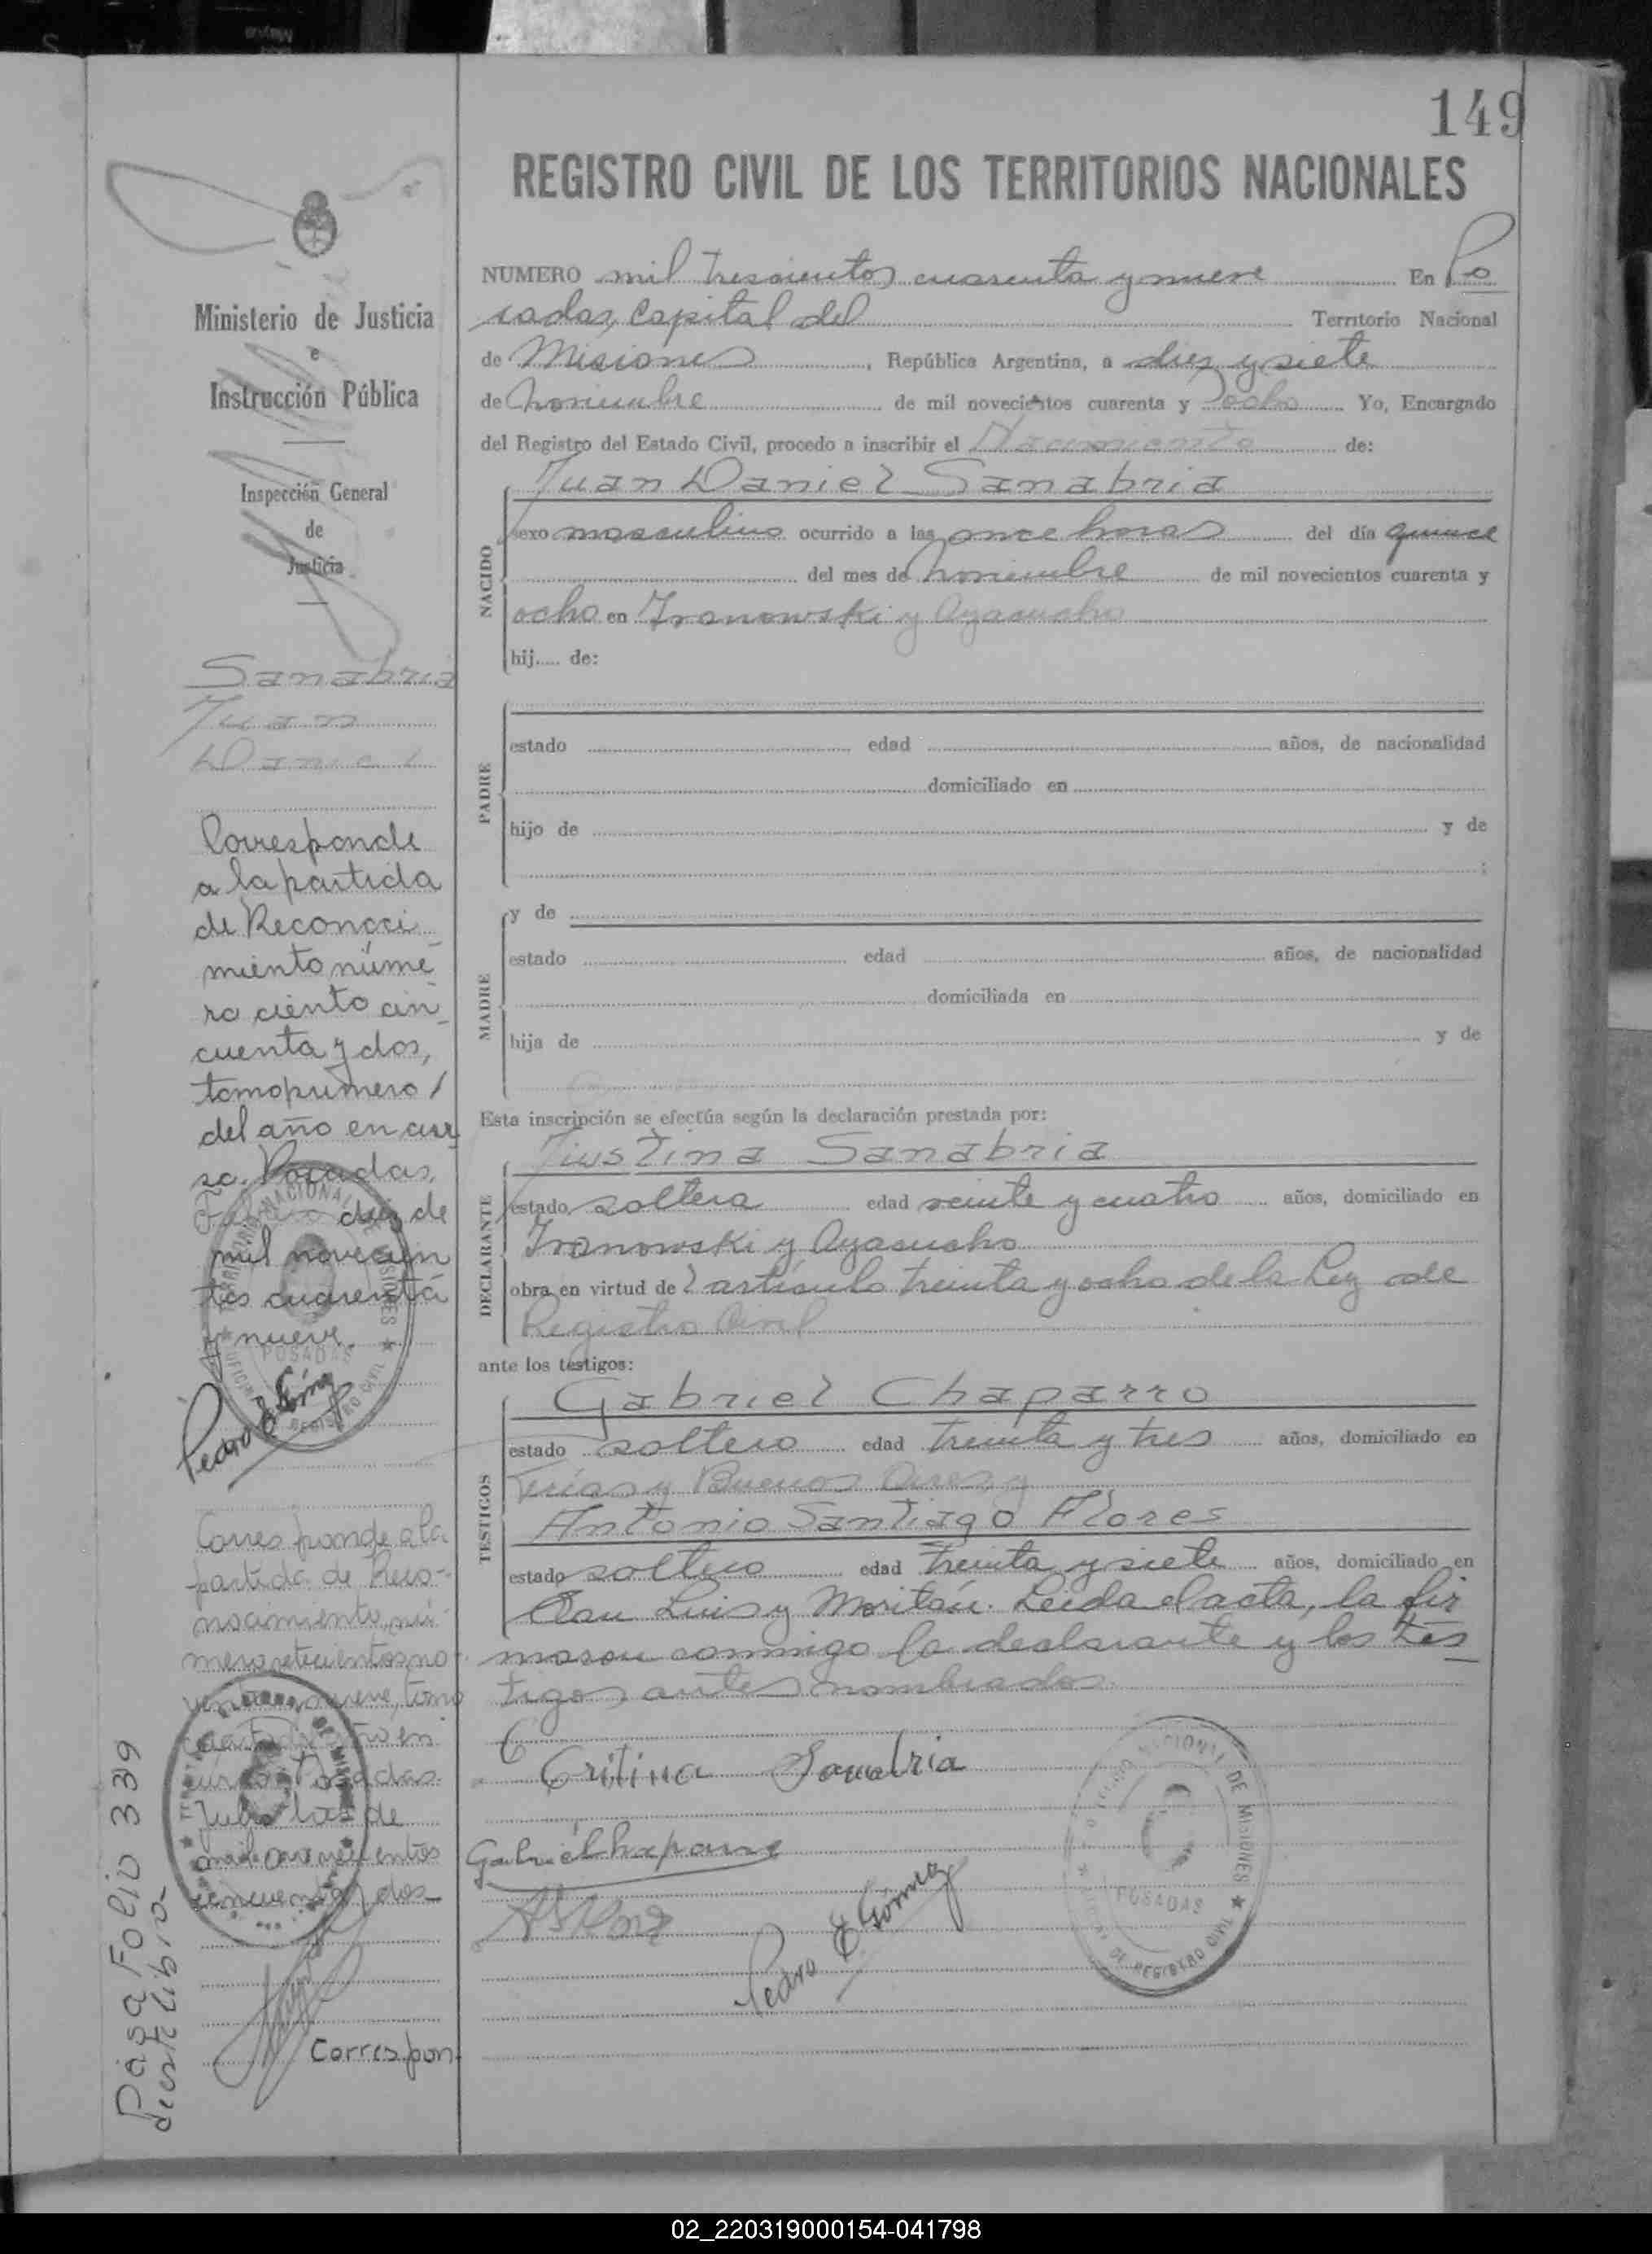 149
REGISTRO CIVIL DE LOS TERRITORIOS NACIONALES
NUMERO mil trescientos cuarenta y nueve En Po
sadas, Capital del Territorio Nacional
de Misiones, República Argentina, a diez y siete
de Noviembre de mil novecientos cuarenta y ocho Yo, Encargado
del Registro del Estado Civil, procedo a inscribir el Nacimiento de:
Juan Daniel Sanabria
NACIDO
sexo masculino ocurrido a las once horas del día quince
del mes de Noviembre de mil novecientos cuarenta y
ocho en Ivanowski y Ayacucho
hij..... de:
PADRE
estado edad años, de nacionalidad
domiciliado en
hijo de y de
;
MADRE
y de
estado edad años, de nacionalidad
domiciliada en
hija de y de
Esta inscripción se efectúa según la declaración prestada por:
DECLARANTE
Justina Sanabria
estado soltera edad veinte y cuatro años, domiciliado en
Ivanowski y Ayacucho
obra en virtud de l artículo treinta y ocho de la Ley de
Registro Civil
ante los testigos:
TESTIGOS
Gabriel Chaparro
estado soltero edad treinta y tres años, domiciliado en
y Buenos Aires y
Antonio Santiago Flores
estado soltero edad treinta y siete años, domiciliado en
San Luis y Moritán. Leida el acta, la fir
maron conmigo la declarante y los tes
tigos antes nombrados.
Critina Sanabria
Gabriel Chaparro
Pedro E Gómez
TERRITORIO NACIONAL DE MISIONES
POSADAS
REGISTRO CIVIL
Ministerio de Justicia
e
Instrucción Pública
Inspección General
de
Justicia
Sanabria
Juan
Daniel
Corresponde
a la partida
de Reconoci
miento núme
ro ciento cin
cuenta y dos,
tomo primero
del año en cur
so. Posadas,
diez de
mil novecien
tos cuarenta
y nueve.
Pedro E Gómez
TERRITORIO NACIONAL DE MISIONES
POSADAS
REGISTRO CIVIL
Corresponde a la
partida de Reco-
nocimiento nú-
mero setecientos no
venta y nueve, tomo
cuarto año en
curso. Posadas
Julio dos de
mil novecientos
cincuenta y dos
Correspon
Pasa Folio 339
de este Libro-
02_220319000154-041798